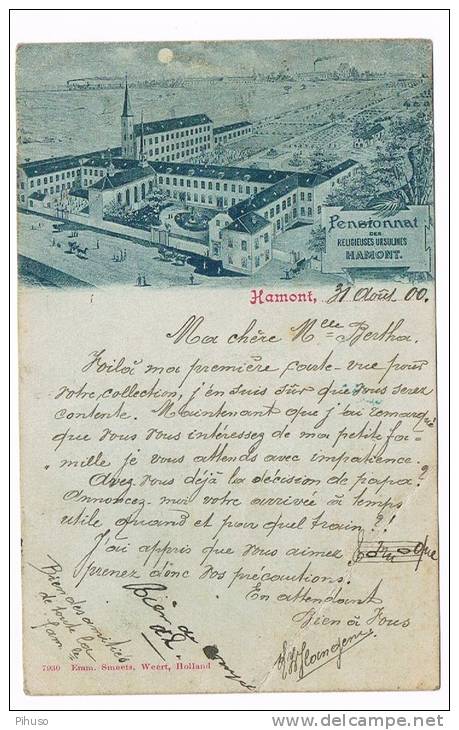 Pensionnat
DES
RELIGIEUSES URSULINES
HAMONT.
Hamont, 31 Août 00.
Ma chère Melle Bertha.
Voilà ma première carte-vue pour
votre collection, j'en suis sûr que vous serez
contente. Maintenant que j'ai remarqué
que vous vous intéressez de ma petite fa-
mille je vous attends avec impatience.
Avez-vous déjà la décision de papa?
Annoncez-moi votre arrivée à temps
utile quand et par quel train?!
J'ai appris que vous aimez que
prenez donc vos précautions.
En attendant
Bien à Vous
Bien des amitiés
de toute la
fam
Bien
7930 Emm. Smeets, Weert, Holland
Pihuso
www.delcampe.net